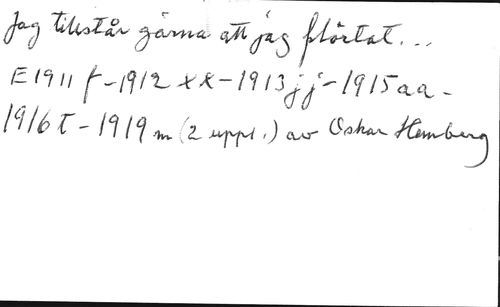 Jag tillstår gärna att jag flörtat...
E 1911 f - 1912 xx - 1913 jj - 1915 aa -
1916 t - 1919 m (2 uppl.) av Oskar Hemberg